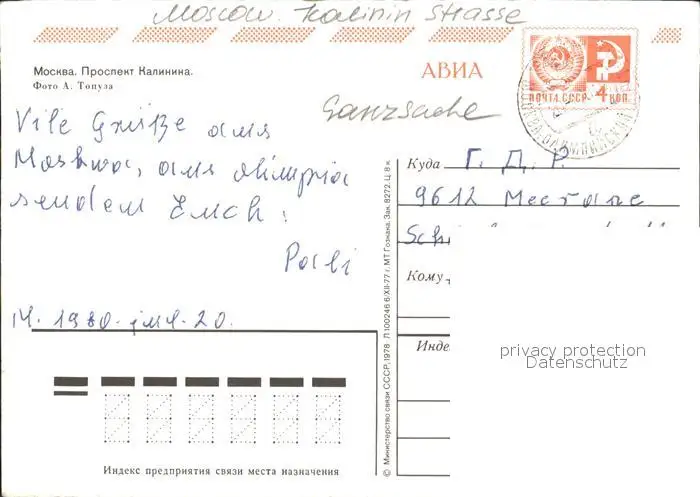 Moscow. Kalinin Strasse
Москва. Проспект Калинина.
Фото А. Топуза
АВИА
ПОЧТА СССР 4 КОП
Ganzsache
Vile Grüße aus
Moskwa, aus olimpia
senden Euch:
Куда Г. Д. Р.
9612 Meerane
Кому
Инде
14. 1980. 20.
privacy protection
Datenschutz
Индекс предприятия связи места назначения
© Министерство связи СССР, 1978 Л 100246 6/XII-77 г. МТ Гознака. Зак. 8272. Ц. 8 к.